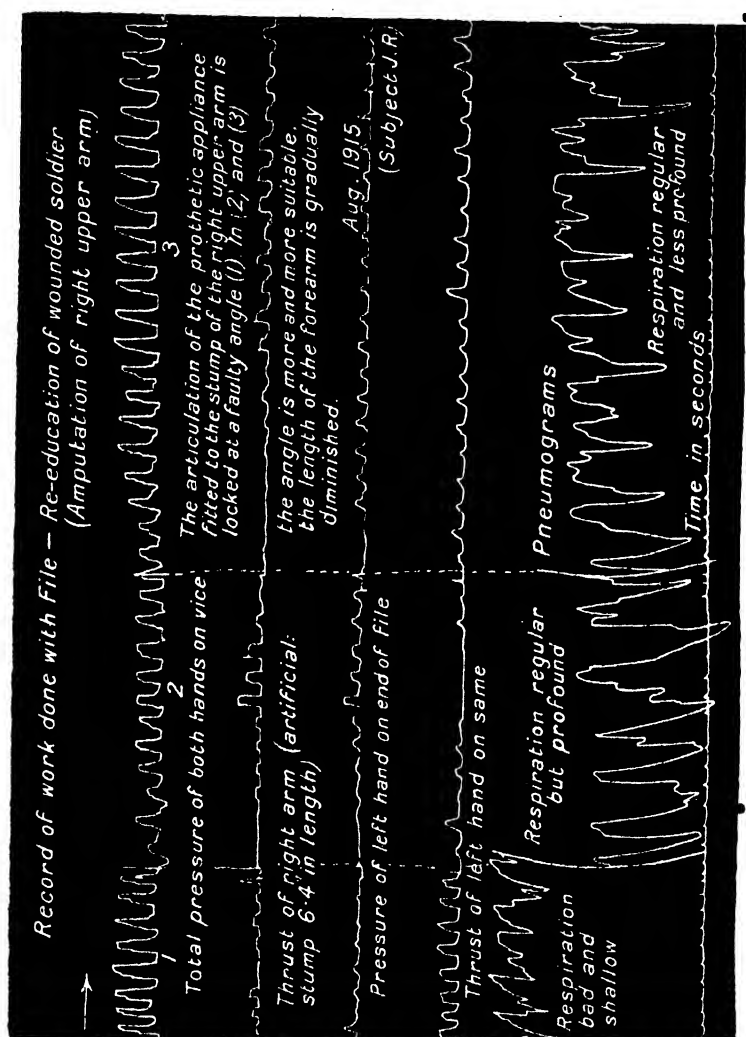 Record of work done with File — Re-education of wounded soldier
(Amputation of right upper arm)
1
2
3
Total pressure of both hands on vice
The articulation of the prothetic appliance
fitted to the stump of the right upper arm is
locked at a faulty angle (1). In (2) and (3)
Thrust of right arm (artificial:
stump 6·4 in length)
the angle is more and more suitable.
the length of the forearm is gradually
diminished.
Aug. 1915
(Subject J.R)
Pressure of left hand on end of File
Thrust of left hand on same
Pneumograms
Respiration
bad and
shallow
Respiration regular
but profound
Respiration regular
and less profound
Time in seconds